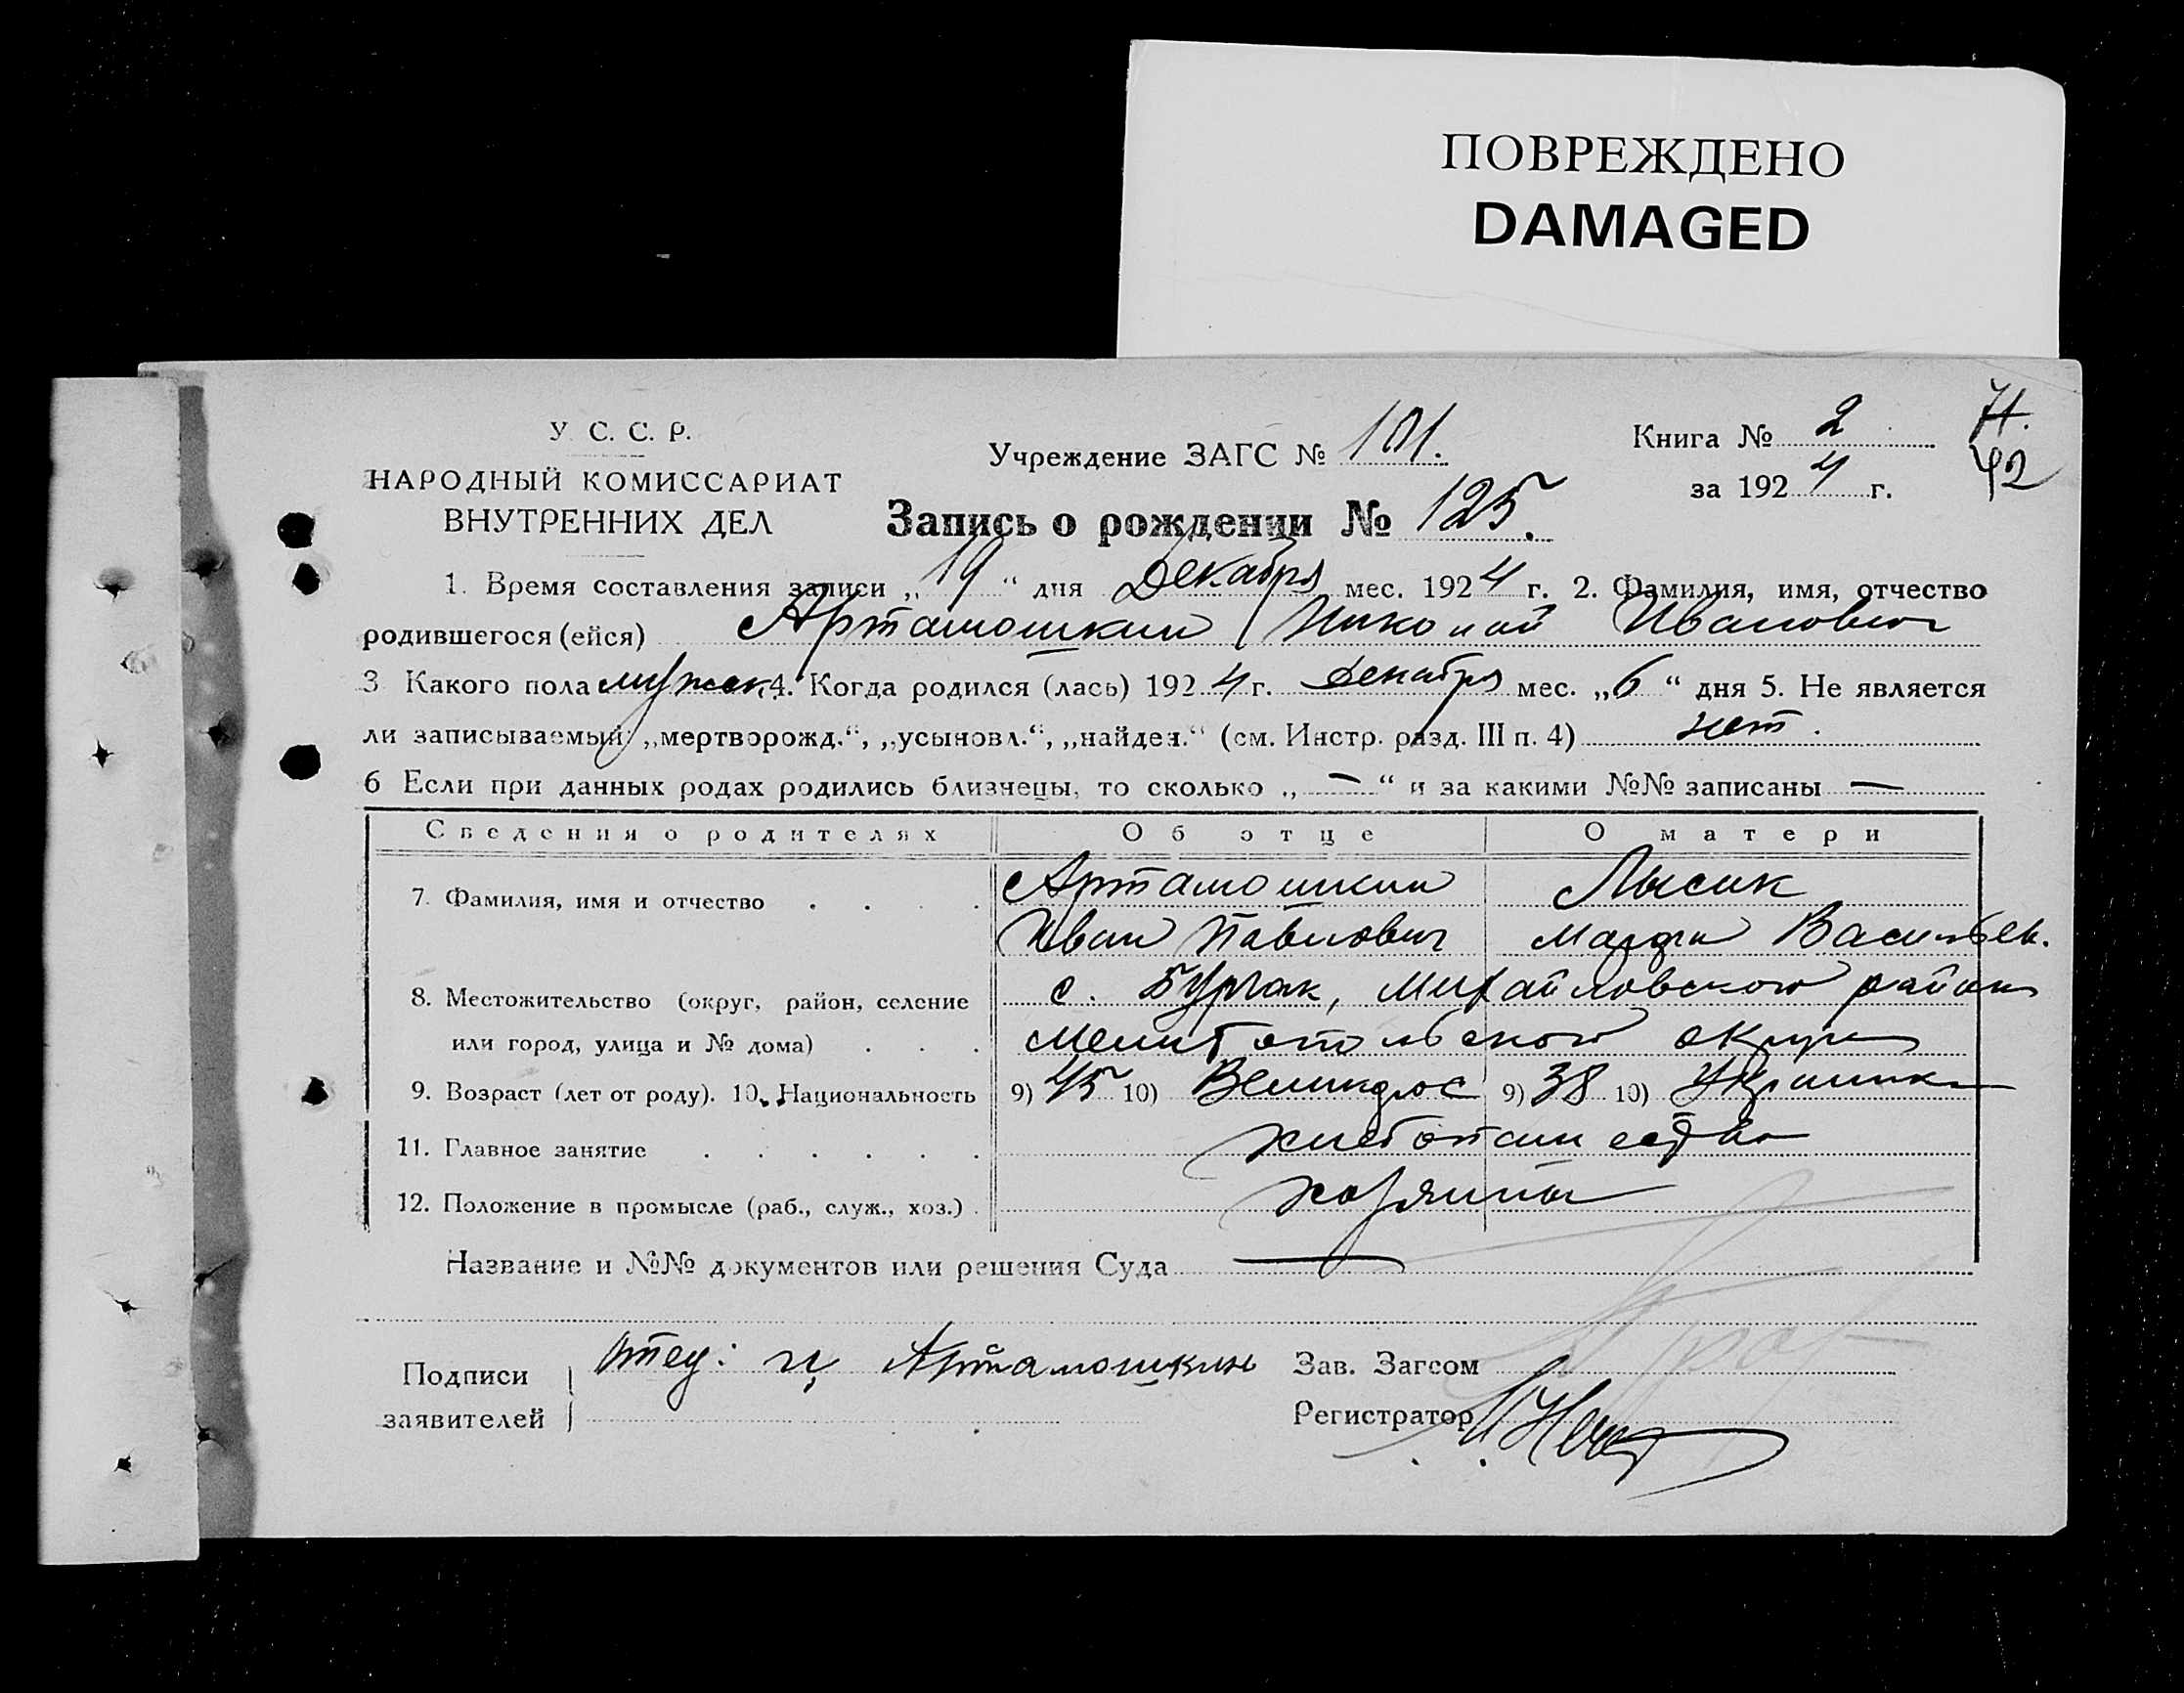 ПОВРЕЖДЕНО
DAMAGED
У. С. С. Р.
НАРОДНЫЙ КОМИССАРИАТ
ВНУТРЕННИХ ДЕЛ
Учреждение ЗАГС № 101.
Книга № 2
за 1924 г.
71.
42
Запись о рождении № 125.
1. Время составления записи „19“ дня Декабря мес. 1924 г. 2. Фамилия, имя, отчество
родившегося (ейся) Артамошкин Николай Иванович
3 Какого пола мужск. 4. Когда родился (лась) 1924 г. декабря мес. „6“ дня 5. Не является
ли записываемый „мертворожд.“, „усыновл.“, „найден.“ (см. Инстр. разд. III п. 4) нет.
6 Если при данных родах родились близнецы, то сколько „—“ и за какими №№ записаны —
Сведения о родителях Об отце О матери
7. Фамилия, имя и отчество Артамошкин Лысак
Иван Павлович Васильев.
8. Местожительство (округ, район, селение с. Бурчак, Михайловского района
или город, улица и № дома) Мелитопольского округа
9. Возраст (лет от роду). 10. Национальность 9) 45 10) Великорос 9) 38 10) Украинка
11. Главное занятие хлебопашество
12. Положение в промысле (раб., служ., хоз.) хозяин
Название и №№ документов или решения Суда —
Подписи заявителей Отец: Артамошкин
Зав. Загсом
Регистратор